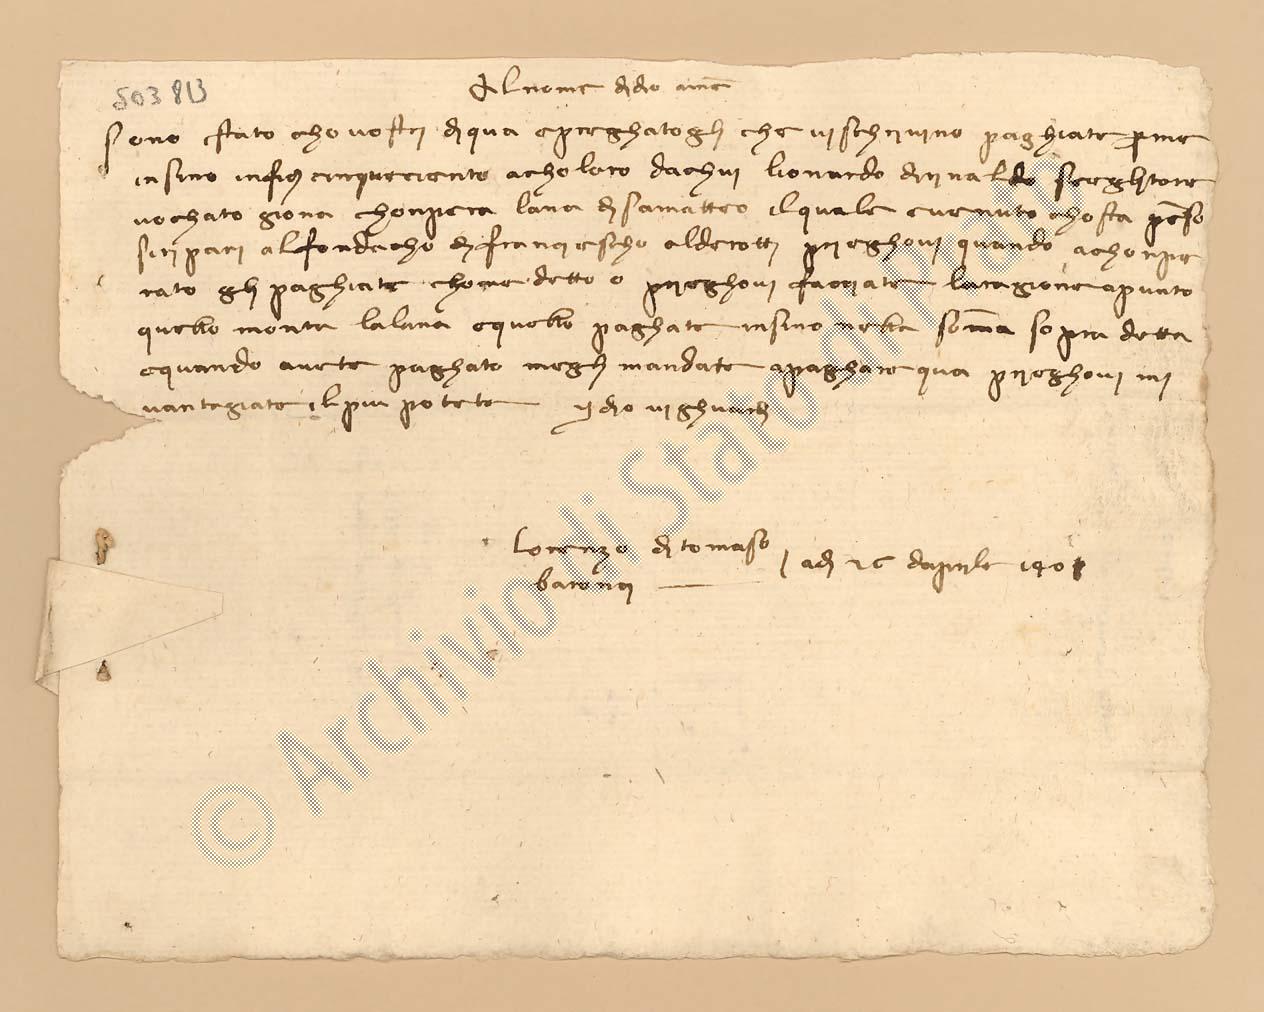 503 813
Al nome di dio ame
Sono stato cho vostri di qua e preghatogli che vi schrivino paghiate per me
insino in fior cinqueciento a choloro da chui lionardo di rinaldo
vochato giona chonpera lana di samatteo il quale e venuto chosta
si ripari al fondacho di franciescho alderotti prieghovi quando a chonpe
rato gli paghiate chome detto o prieghovi facciate la ragione apunto
quello monta la lana e quello paghate insino nella somma sopra detta
e quando avete paghato megli mandate a paghare qua prieghovi mi
vantagiate il piu potete idio vi ghuardi
Lorenzo di tomaso
baronci
adi 26 daprile 1401
© Archivio di Stato di Prato